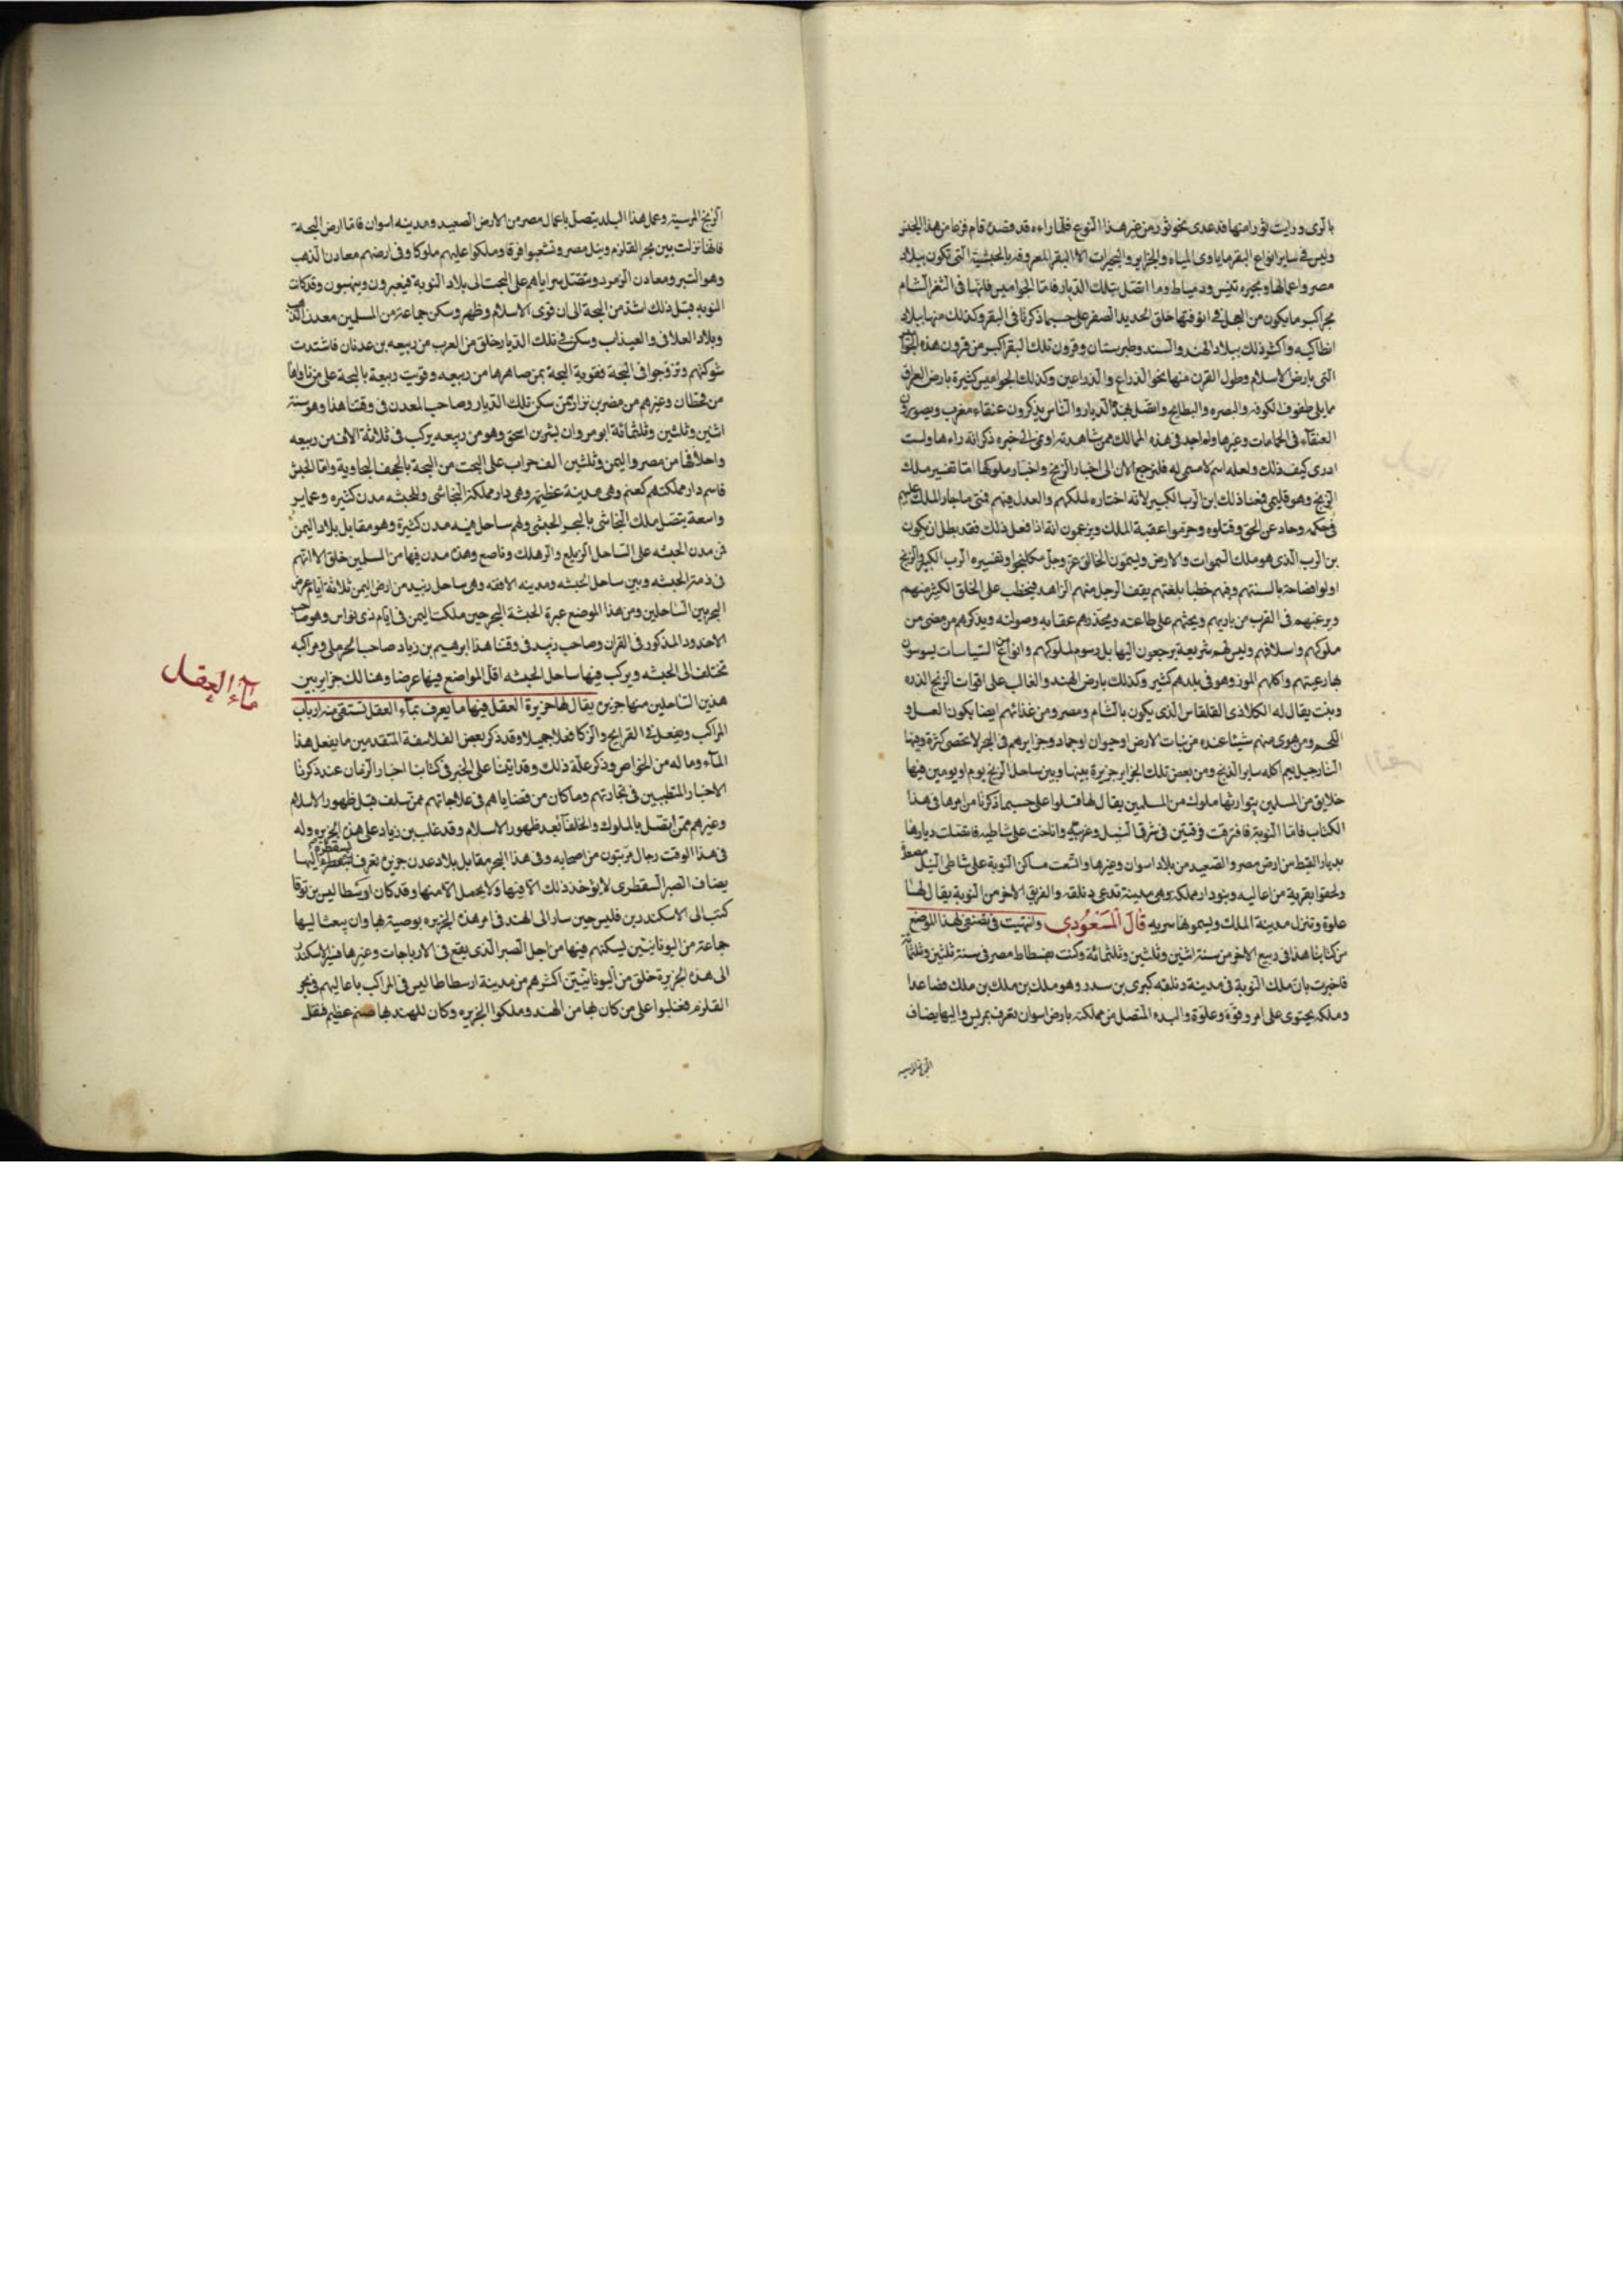 بالرى ورايت ثورا منها قد عدى نحو ثور من غير هذا النوع فلما راءه قد قصده قام فزعا من هذا الجنس
وليس فى ساير انواع البقر ما ياوى المياه والجزاير والبحيرات الا البقر المعروفه بالحبشية التى تكون ببلاد
مصر واعمالها وبحيره تنيس ودمياط وما اتصل بتلك الديار فاما الجواميس فانها فى الثغر الشام
تجر اكبر ما يكون من العجل فى انوفتها حلق الحديد الصفر على حسب ما ذكرنا فى البقر وكذلك منها ببلاد
انطاكيه واكثر ذلك ببلاد الهند والسند وطبرستان وقرون تلك البقر اكبر من قرون هذه الجواميس
التى بارض الاسلام وطول القرن منها نحو الذراع والذراعين وكذلك الجواميس كثيرة بارض العراق
مما يلى طفوف الكوفه والبصره والبطايح وما اتصل بهذه الديار والناس يذكرون عنقاء مغرب ويصورون
العنقآء فى الحمامات وغيرها ولم اجد فى هذه الممالك ممن شاهدته او نمى الى خبره ذكر انه راءها ولست
ادرى كيف ذلك ولعله اسم لا مسمى له فلنرجع الان الى اخبار الزنج واخبار ملوكها اما تفسير ملك
الزنج وهو فليمى فمعنا ذلك ابن الرب الكبير لانه اختاره لملكهم والعدل فيهم فمتى ما جار الملك عليهم
فى حكمه وحاد عن الحق وقتلوه وحرموا عقبة الملك ويزعمون انه اذا فعل ذلك فقد بطل ان يكون
بن الرب الذى هو ملك السموات والارض ويسمون الخالق عز وجل مكلنجوا وتفسيره الرب الكبير والزنج
اولوا فصاحة بالسنتهم وفيهم خطبا بلغتهم يقف الرجل منهم الزاهد فيخطب على الخلق الكثير منهم
ويرغبهم فى القرب من باريهم ويحثهم على طاعته ويحذرهم عقابه وصولته ويذكرهم من مضى من
ملوكهم واسلافهم وليس لهم شريعة يرجعون اليها بل رسوم لملوكهم وانواع من السياسات يسوسون
بها رعيتهم واكلهم الموز وهو فى بلدهم كثير وكذلك بارض الهند والغالب على اقوات الزنج الذره
ونبت يقال له الكلاذى القلقاس الذى يكون بالشام ومصر ومن غذائهم ايضا يكون العسل و
اللحم ومن هوى منهم شيئا عنده من نبات الارض او حيوان او جماد وجزايرهم فى البحر لا تحصى كثرة وفيها
النارجيل يعم اكله ساير الزنج ومن بعض تلك الجزاير جزيرة بينها وبين ساحل الزنج يوم او يومين فيها
خلايق من المسلمين يتوارثها ملوك من المسلمين يقال لها قنبلوا على حسب ما ذكرنا من امرها فى هذا
الكتاب فاما النوبة فافترقت فرقتين فى شرق النيل وغربيه واناخت على شاطيه فاتصلت ديارها
بديار القبط من ارض مصر والصعيد من بلاد اسوان وغيرها واتسعت مساكن النوبة على شاطى النيل مصعدا
ولحقوا بقرية من اعاليه وبنو دار مملكه وهى مدينة تدعى دنلقه والفريق الاخر من النوبة يقال لها
علوة وتنزل مدينة الملك ويسموها سريه قال المسعودي وانتهيت فى تصنيفى لهذا الموضع
من كتابنا هذا فى ربيع الاخر من سنة اثنين وثلثين وثلثمائة وكنت بفسطاط مصر فى سنة ثلثين وثلثمائة
فاخبرت بان ملك النوبة فى مدينة دنلقه كبرى بن سدد وهو ملك بن ملك بن ملك فصاعدا
وملكه يحتوى على امر وقوة وعلوة والبلد المتصل من مملكته بارض اسوان تعرف بمريس واليها يضاف
الزنج المرسيه
الزنج المرسية وعمل هذا البلد يتصل باعمال مصر من الارض الصعيد ومدينه اسوان فاما ارض البجة
فانها نزلت بين بحر القلزم ونيل مصر وتشعبوا فرقا وملكوا عليهم ملوكا وفى ارضهم معادن الذهب
وهو التبر ومعادن الزمرد ويتصل سراياهم على البخت الى بلاد النوبة فيعبرون وينهبون وقد كانت
النوبه قبل ذلك اشد من البجة الى ان قوى الاسلام وظهر وسكن جماعة من المسلمين معدن الذهب
وبلاد العلاقى والعيذاب وسكن فى تلك الديار خلق من العرب من ربيعه بن عدنان فاشتدت
شوكتهم وتزوجوا فى البجة فقوية البجة بمن صاهرها من ربيعه وقويت ربيعة بالبجة على من ناواها
من قحطان وغيرهم من مضر بن نزار ممن سكن تلك الديار وصاحب المعدن فى وقتنا هذا وهو سنة
اثنين وثلثين وثلثمائة ابو مروان بشر بن اسحق وهو من ربيعه يركب فى ثلاثة الاف من ربيعه
واحلافها من مصر واليمن وثلثين الف حراب على البخت من البجة بالجحف البجاوية واما الحبش
فاسم دار مملكتهم كعبر وهى مدينة عظيمة وهى دار مملكة النجاشى وللحبشه مدن كثيره وعماير
واسعة يتصل ملك النجاشى بالبحر الحبشى ولهم ساحل فيه مدن كثيرة وهو مقابل بلاد اليمن
فمن مدن الحبشه على الساحل الزيلع والرهلك وناصع وهذه مدن فيها من المسلمين خلق الا انهم
فى ذمة الحبشه وبين ساحل الحبشه ومدينه الافقه وهى ساحل زبيد من ارض اليمن ثلاثة ايام عرض
البحر بين الساحلين ومن هذا الموضع عبرة الحبشة البحر حين ملكت اليمن فى ايام ذى نواس وهو صاحب
الاخدود المذكور فى القران وصاحب زبيد فى وقتنا هذا ابرهيم بن زياد صاحب الحرملى ومراكبه
تختلف الى الحبشه ويركب فيها ساحل الحبشه اقل المواضع فيها عرضا وهنالك جزاير بين
هذين الساحلين منها جزيره يقال لها جزيرة العقل فيها ما يعرف بمآء العقل تستقى منه ارباب
المراكب ويفعل فى القرايح والزكا فعلا جميلا وقد ذكر بعض الفلاسفة المتقدمين ما يفعل هذا
المآء وما له من الخواص وذكر علة ذلك وقد اتينا على الخبر فى كتابنا اخبار الزمان عند ذكرنا
الاخبار المتطببين فى تجارتهم وما كان من قضاياهم فى علاجاتهم ممن سلف قبل ظهور الاسلام
وغيرهم ممن اتصل بالملوك والخلفآ بعد ظهور الاسلام وقد غلب بن زياد على هذه الجزيره وله
فى هذا الوقت رجال مرتبون من اصحابه وفى هذا البحر مقابل بلاد عدن جزيرة تعرف بسقطرة اليها
يضاف الصبر السقطرى لا يؤخذ ذلك الا فيها ولا يحمل الا منها وقد كان ارسطاليس بن نوقا
كتب الى الاسكندر بن فليس حين سار الى الهند فى امر هذه الجزيره بوصيته بها وان يبعث اليها
جماعة من اليونانيين يسكنهم فيها من اجل الصبر الذى يقع فى الارياجات وغيرها فسير الاسكندر
الى هذه الجزيرة خلق من اليونانيين اكثرهم من مدينة ارسطاطاليس فى المراكب باعاليهم فى بحر
القلزم فغلبوا على من كان بها من الهند وملكوا الجزيره وكان للهند بها صنم عظيم فنقل
مآء العقل